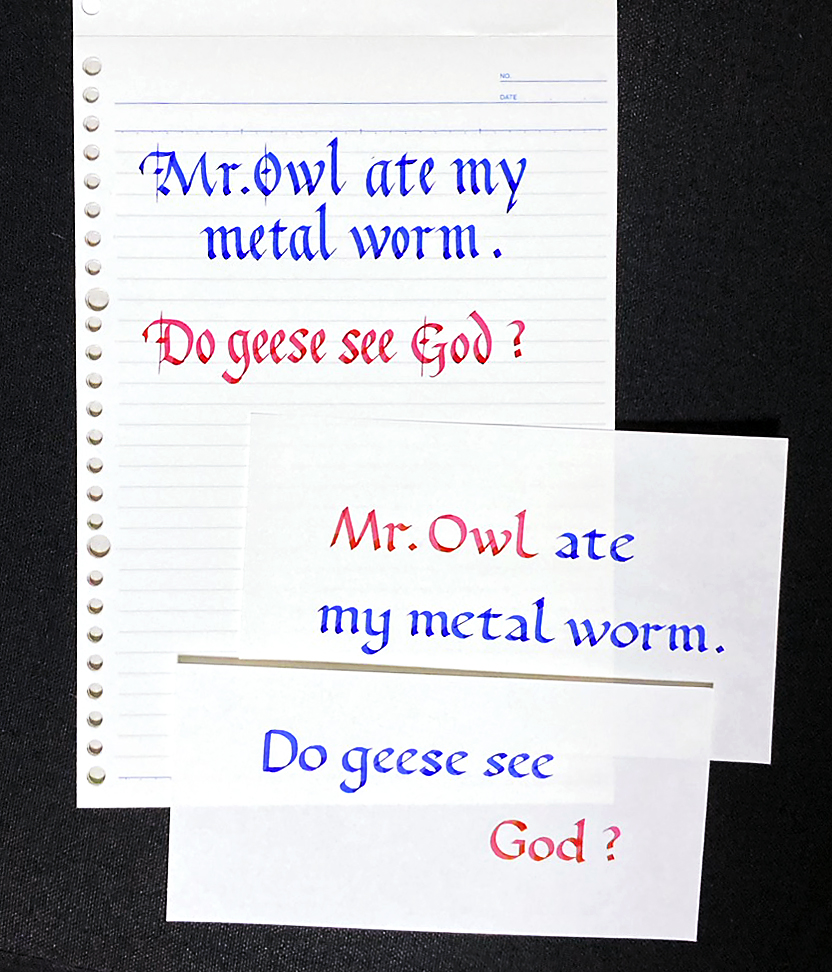 NO.
DATE
Mr. Owl ate my
metal worm.
Do geese see God?
Mr. Owl ate
my metal worm.
Do geese see
God?